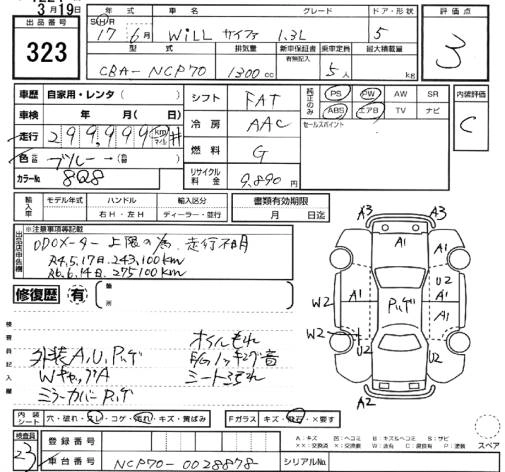 3月19日
出品番号
323
年式 車名 グレード ドア・形状
S H R 17年6月 WiLL サイファ 1.3L 5
型式 排気量 新車保証書 有無記入 乗車定員 最大積載量
CBA-NCP70 1300cc 5人 kg
評価点
3
車歴 自家用・レンタ( )
車検 年 月( 日)
走行 299,999 km マイル #
色 元色 ブルー→ 色替( )
カラーNo. 8Q8
シフト FAT
冷房 AAC
燃料 G
リサイクル料金 9,890円
純正のみ PS PW AW SR
ABS エアB TV ナビ
セールスポイント
内装評価
C
輸入車 モデル年式 ハンドル 輸入区分
右H・左H ディーラー・並行
書類有効期限
月 日迄
出品店申告欄
※注意事項等記載
ODOメーター上限の為、走行不明
R4.5.17日.243,100km
R6.6.14日.275100km
修復歴 有 箇所
検査員記入欄
外装A.U.Pッゲ オイルもれ
WキャップA F/Gノッキング音
ミラーカバーPッゲ シートコスれ
A3 A3
A1 A1
U2
W2 A1 Pッゲ A1 A1
W2 U2 U2
A2
内装シート 穴・破れ・スレ・コゲ・汚れ・キズ・黄ばみ
Fガラス キズ・飛石・×要す
検査員
23
登録番号
車台番号 NCP70-0028878
シリアルNo.
スペア